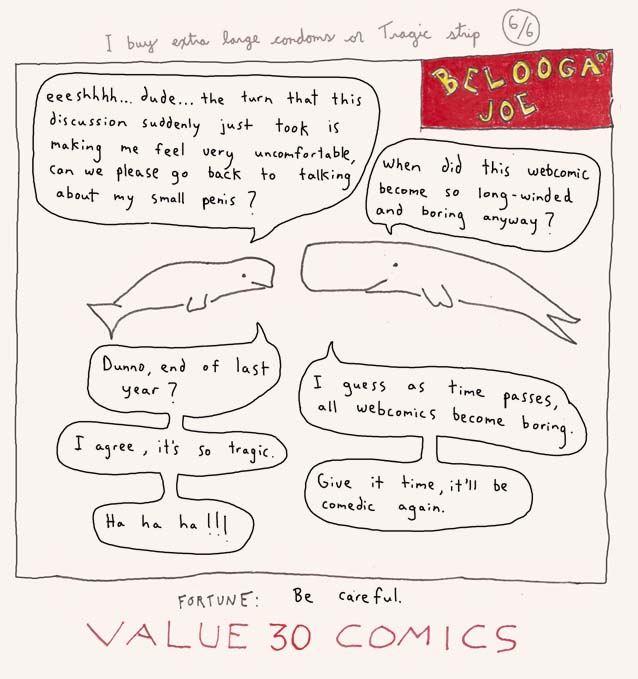 I buy extra large condoms or Tragic strip 6/6
BELOOGA
JOE
eeeshhhh... dude... the turn that this
discussion suddenly just took is
making me feel very uncomfortable,
can we please go back to talking
about my small penis?
when did this webcomic
become so long-winded
and boring anyway?
Dunno, end of last
year?
I guess as time passes,
all webcomics become boring.
I agree, it's so tragic.
Give it time, it'll be
comedic again.
Ha ha ha!!!
FORTUNE: Be careful.
VALUE 30 COMICS